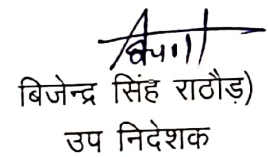 बिजेन्द्र सिंह राठौड़)
उप निदेशक